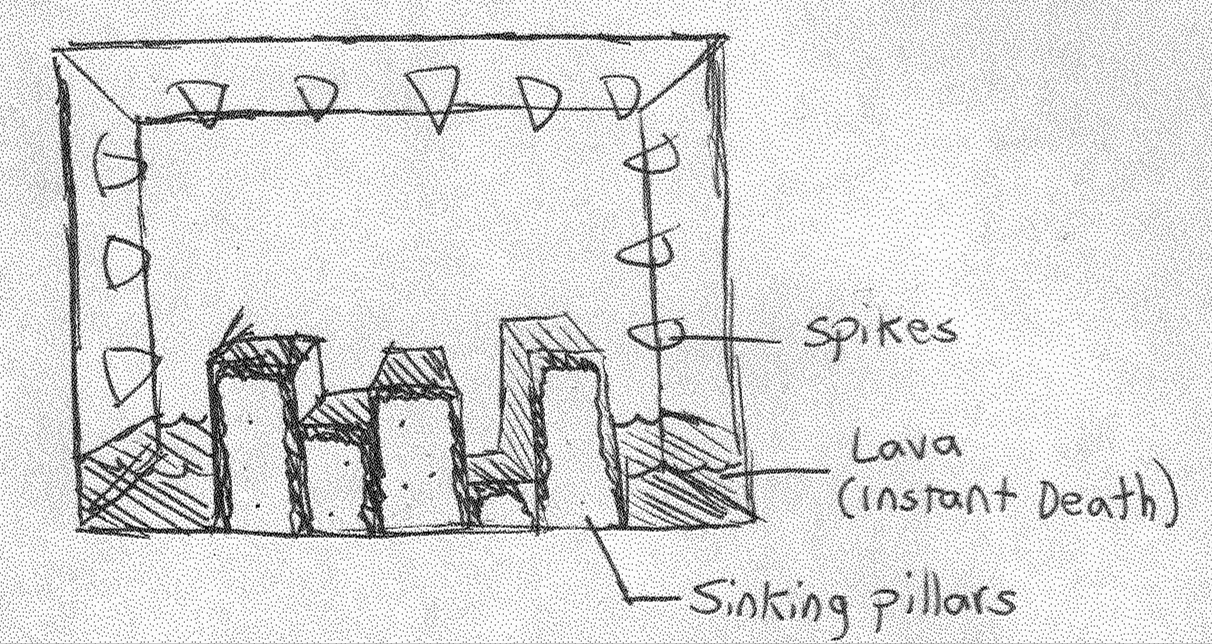 Spikes
Lava
(instant Death)
Sinking pillars